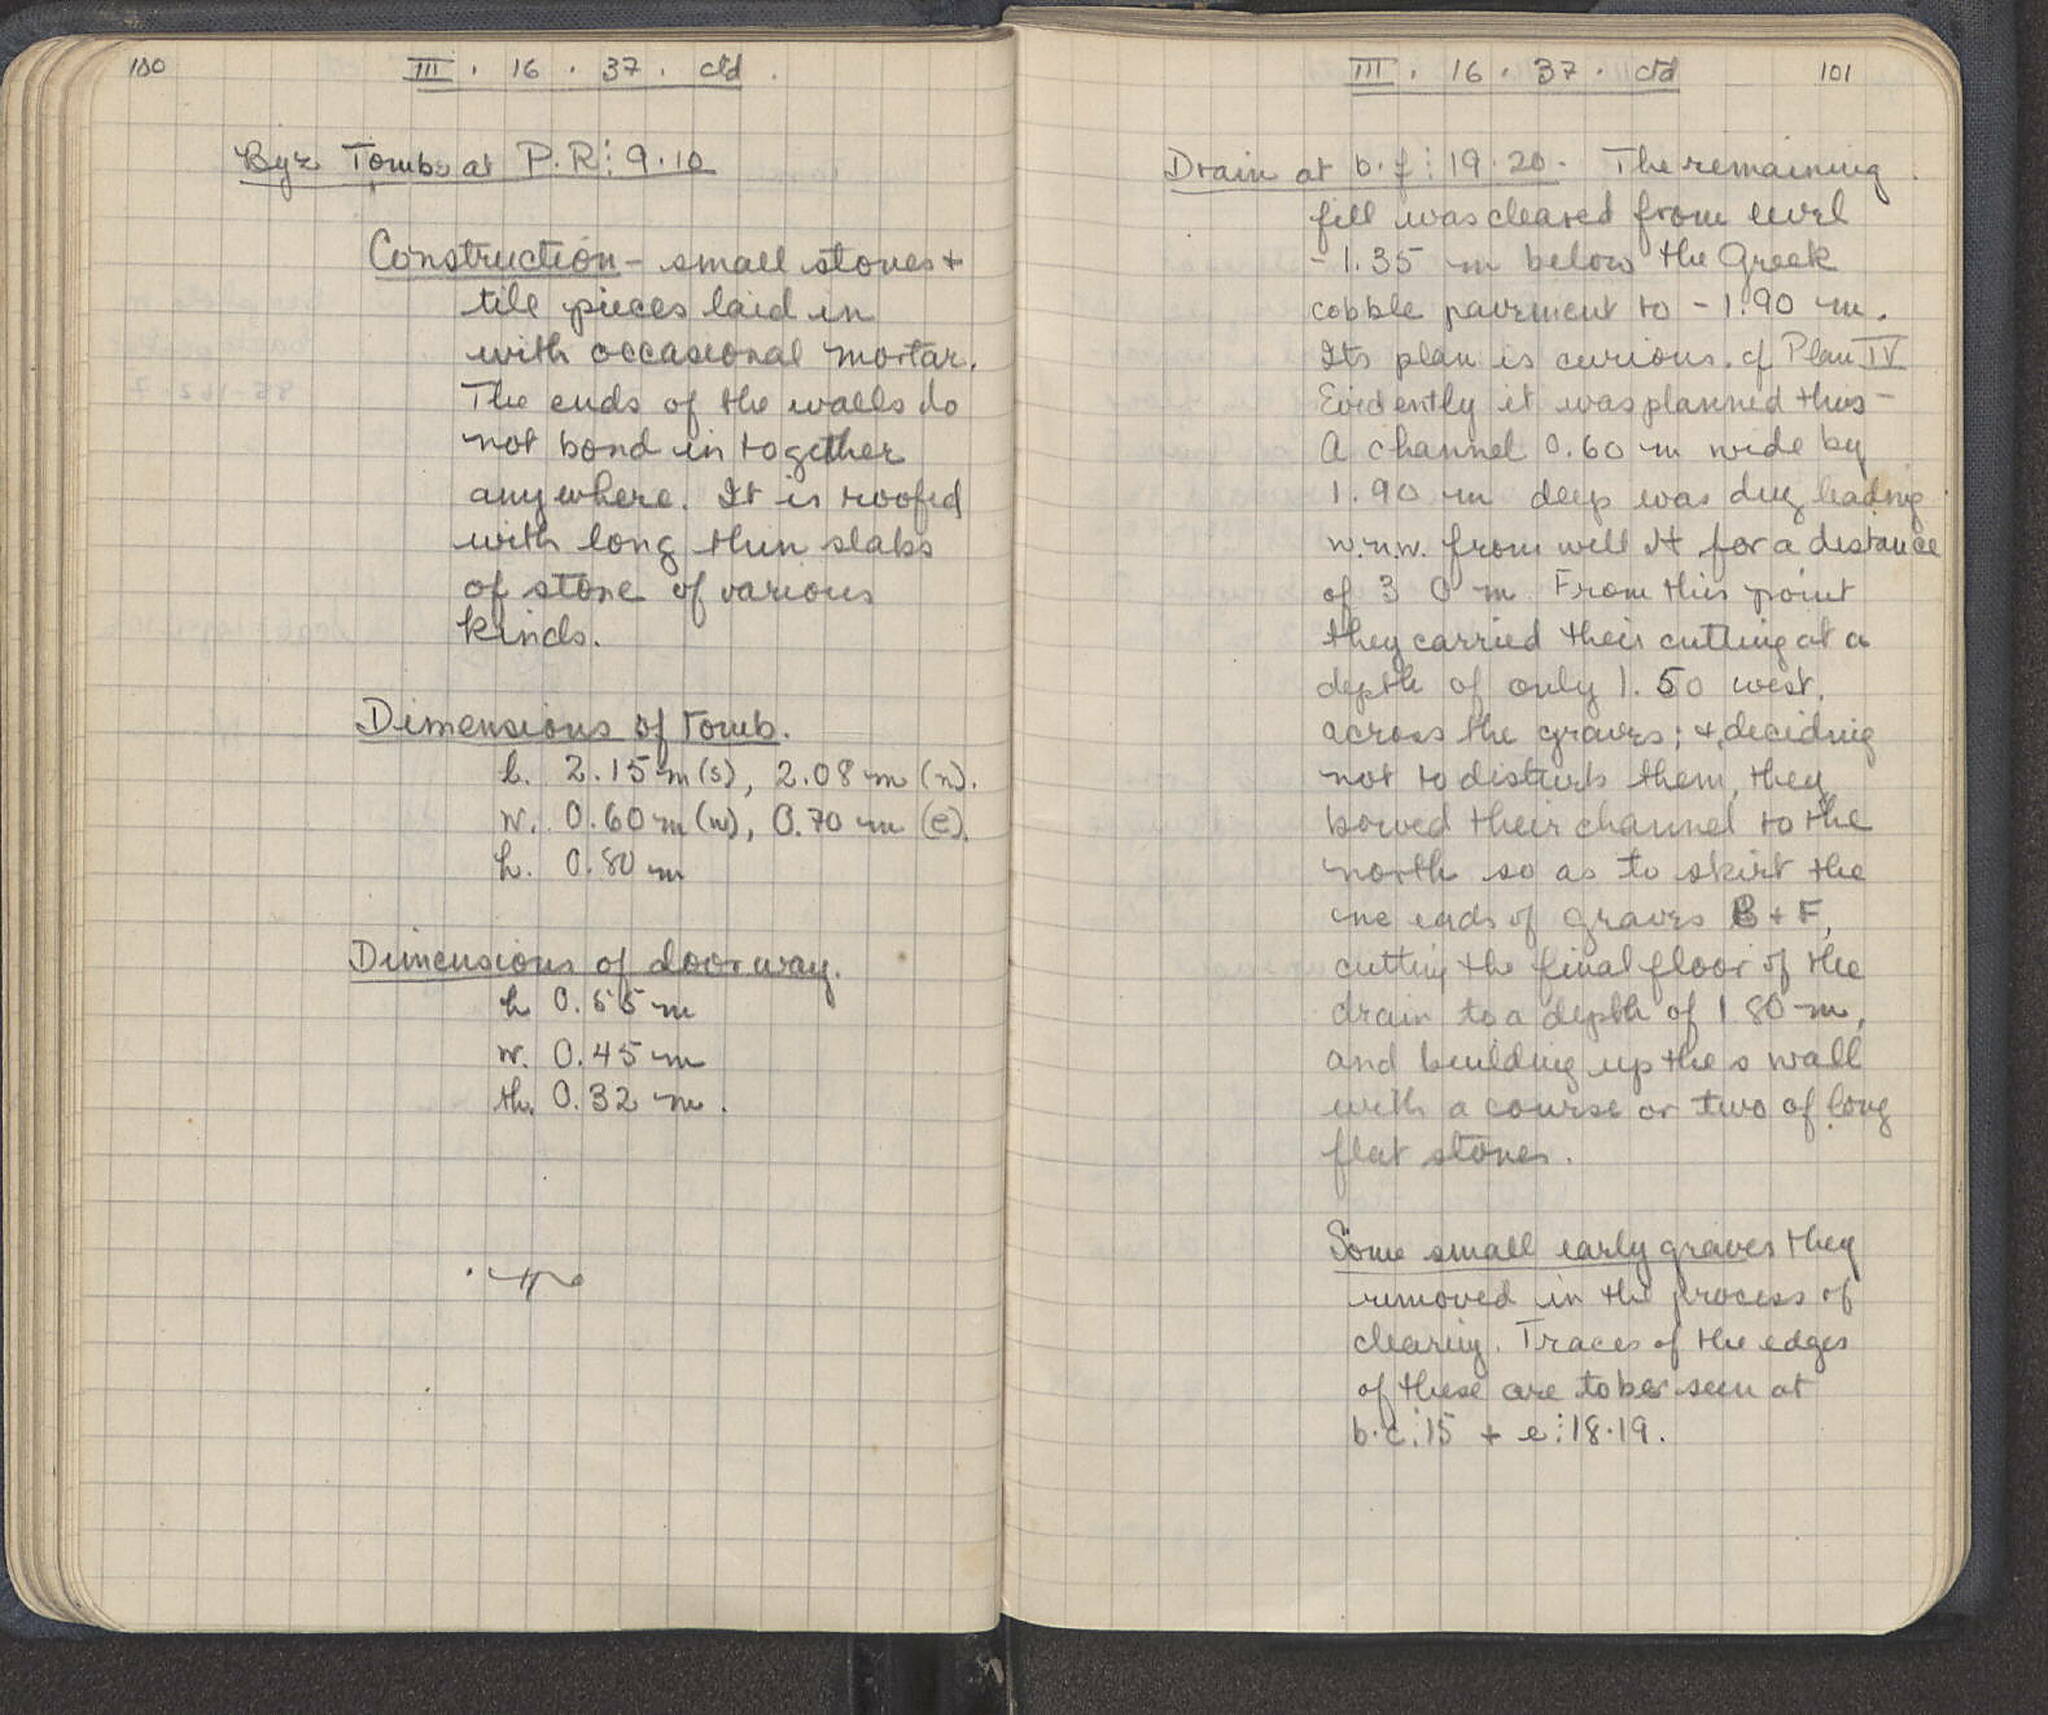 100
III . 16 . 37 . ctd .
Byz Tombs at P.R⋮9.10
Construction - small stones +
tile pieces laid in
with occasional mortar.
The ends of the walls do
not bond in together
anywhere. It is roofed
with long thin slabs
of stone of various
kinds.
Dimensions of Tomb.
l. 2.15 m (s), 2.08 m (n).
w. 0.60 m (w), 0.70 m (e).
h. 0.80 m
Dimensions of doorway.
h 0.55 m
w. 0.45 m
th. 0.32 m.
III . 16 . 37 . ctd
101
Drain at b.f⋮19.20. The remaining
fill was cleared from level
-1.35 m below the Greek
cobble pavement to -1.90 m.
Its plan is curious. cf Plan IV
Evidently it was planned thus -
A channel 0.60 m wide by
1.90 m deep was dug leading
w.n.w. from well for a distance
of 3 0 m From this point
they carried their cutting at a
depth of only 1.50 west,
across the graves; + deciding
not to disturb them, they
bowed their channel to the
north so as to skirt the
ne ends of graves B + F,
cutting the final floor of the
drain to a depth of 1.80 m,
and building up the s wall
with a course or two of long
flat stones.
Some small early graves they
removed in the process of
clearing. Traces of the edges
of these are to be seen at
b.c⋮15 + e⋮18.19.